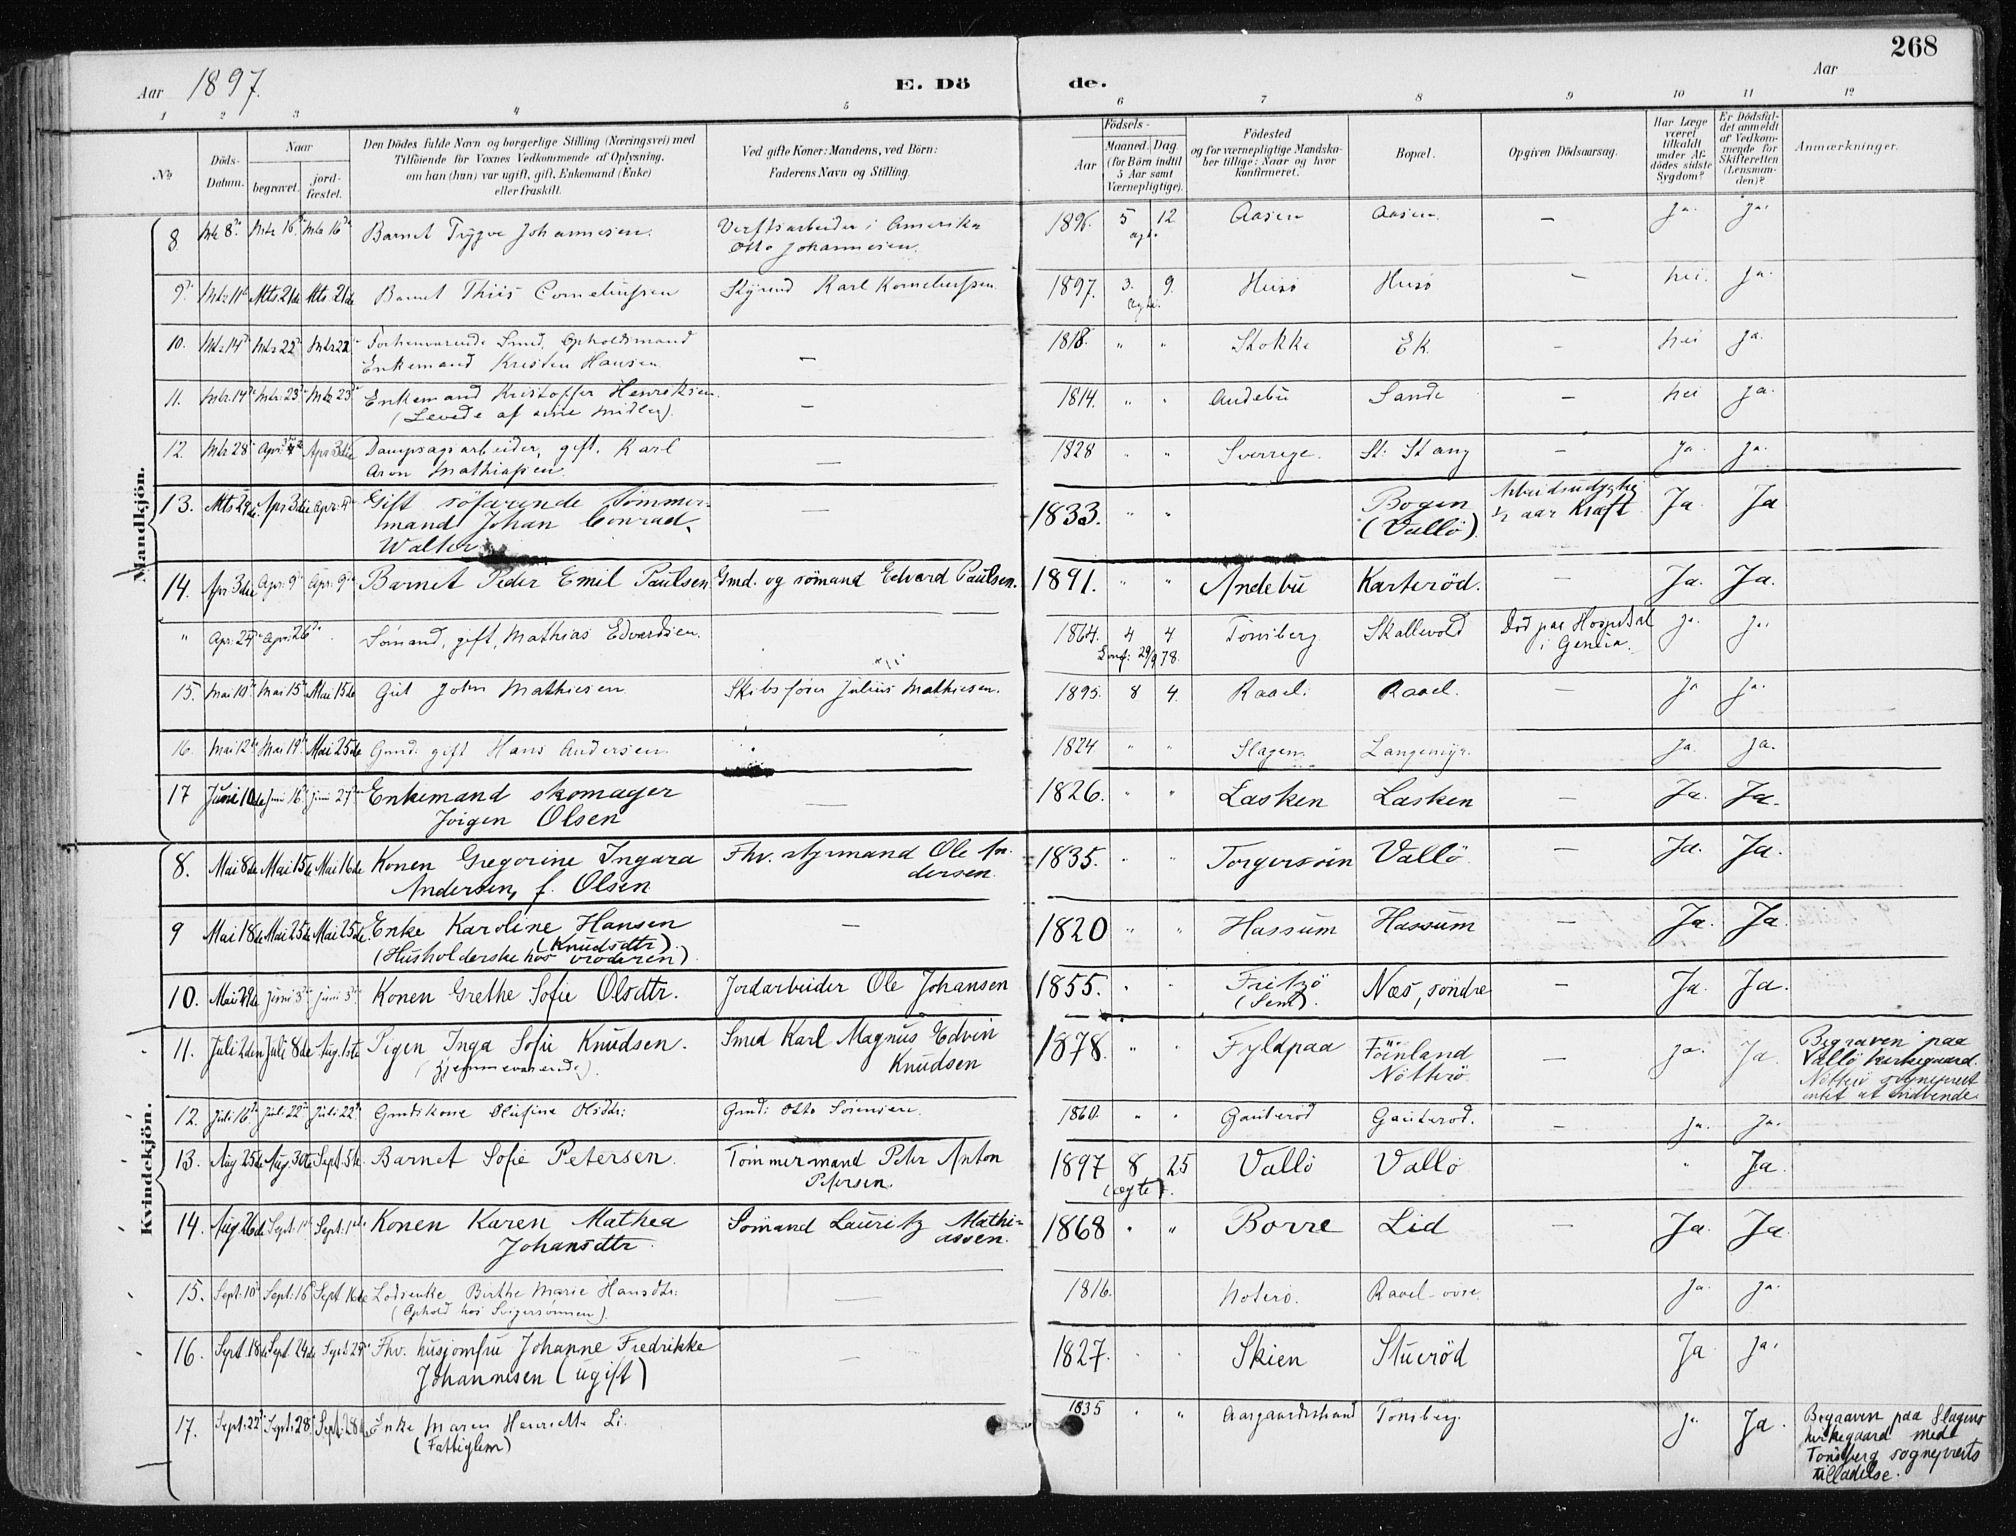 268
Aar 1897.
E. Dö de.
Aar
1 2 3 4 5 6 7 8 9 10 11 12
No
Döds-Datum.
Naar
begravet.
jord-fæstet.
Den Dödes fulde Navn og borgerlige Stilling (Næringsvei) med
Tilföiende for Voxnes Vedkommende af Oplysning,
om han (hun) var ugift, gift, Enkemand (Enke)
eller fraskilt.
Ved gifte Koner: Mandens, ved Börn:
Faderens Navn og Stilling.
Födsels-
Aar
Maaned. Dag.
(for Börn indtil
5 Aar samt
Værnepligtige).
Födested
og for værnepligtige Mandska-
ber tillige: Naar og hvor
konfirmeret.
Bopæl.
Opgiven Dödsaarsag.
Har Læge
været
tilkaldt
under Af-
dödes sidste
Sygdom?
Er Dödsfal-
det anmeldt
af Vedkom-
mende for
Skifteretten
(Lensman-
den)?
Anmærkninger.
Mandkjön.
8 Mts 8de Mts 16de Mts 16de Barnet Trygve Johannesen. Verftsarbeider i Amerika 1896. 5 12 Aasen Aasen. — Ja. Ja.
Otto Johannesen. ægte.
9de Mts 11te Mts 21de Mts. 21de Barnet Thiis Corneliussen Styrmd Karl Korneliussen. 1897. 3. 9. Husö Husö — nei Ja.
ægte.
10. Mts 14de Mts 22de Mts 22de Forhenværende Smed, Opholdsmand — 1818. " " Stokke Ek. — nei ja.
Enkemand Kristen Hansen
11. Mts. 14de Mts. 23de Mts 23de Enkemand Kristoffer Henriksen. — 1814. " " Andebu Sande — nei ja.
(Levede af sine midler).
12. Mts 28de Apr. 3die Apr 3die Dampsagsarbeider, gift, Karl — 1828 " " Sverrige. St. Stang — Ja. ja.
Aron Mathiassen
13. Mts 29de Apr 3die Apr. 4de Gift söfarende Tömmer- — 1833. " " Bogen Arbeidsudygtig Ja. Ja
mand Johan Conrad (Vallö). 1/2 aar Kræft
Walter
14. Apr 3die Apr. 9de Apr. 9de Barnet Peder Emil Paulsen Gmd. og sömand Edvard Paulsen. 1891. " " Andebu Karteröd. — Ja. Ja.
" Apr. 25de Apr. 26de Sömand, gift, Mathias Edvardsen. 1864. 4 4 Tönsberg Skallevold Död paa Hospital ja. ja.
Conf: 29/9 78. i Genua.
15. Mai 10de Mai 15de Mai 15de Gut John Mathiesen Skibsförer Julius Mathiesen. 1895. 8 4. Raael. Raael. — Ja ja.
16. Mai 12te Mai 19de Mai 25de Gmd. gift Hans Andersen 1824 " " Slagen Langemyr. ja. ja.
17 Juni 10de Juni 16de Juni 27de Enkemand skomager — 1826. " " Lasken Lasken — Ja. Ja.
Jörgen Olsen
Kvindekjön.
8. Mai 8de Mai 15de Mai 16de Konen Gregorine Ingara Fhv. styrmand Ole An- 1835. " " Torgersöin Vallö — Ja. Ja.
Andersen, f. Olsen dersen.
9 Mai 18de Mai 25de Mai 25de. Enke Karoline Hansen — 1820 " " Hassum Hassum — Ja. Ja
(Knudsdtr)
(Husholderske hos broderen)
10. Mai 29de Juni 3die juni 3die Konen Grethe Sofie Olsdtr. Jordarbeider Ole Johansen 1855. " " Fritzö Næs, söndre — Ja. Ja.
(Sem).
11. Juli 2den Juli 8de Aug. 1ste Pigen Inga Sofie Knudsen. Smed Karl Magnus Edvin 1878. Fyldpaa Föinland — ja. Ja. Begraven paa
(hjemmeværende). Knudsen Nötterö Vallö kirkegaard.
Nötterö sogneprest
intet at indvende.
12. Juli 16de Juli 22de Juli 22de Gmdskone Olufine Olsdtr: Gmd: Otto Sörensen. 1860. " " Gauteröd Gauteröd. — ja. Ja.
13. Aug 25de Aug. 30te Sept. 5te Barnet Sofie Petersen. Tömmermand Peter Anton 1897 8 25 Vallö Vallö " Ja.
Petersen. (ægte).
14. Aug 26de Sept. 1ste Sept. 1ste Konen Karen Mathea Sömand Lauritz Mathi- 1868 " " Borre Lid — Ja. Ja.
Johansdtr. assen.
15. Sept. 10de Sept. 16de Sept 16de Lodsenke Birthe Marie Hansdtr: — 1816. Nöterö. Raael-övre. ja. ja.
(Ophold hos Svigersönnen).
16. Sept. 18de Sept 24de Sept. 29de Fhv. husjomfru Johanne Fredrikke — 1827. " " Skien Stueröd Ja ja.
Johannesen (ugift)
17. Sept. 22de Sept. 28de Sept. 28de Enke Maren Henriette Li. 1835 " " Aasgaardsstrand Tönsberg. ja Ja. Begraven paa Slagens
(Fattiglem) kirkegaard med
Tönsberg sogneprests
tilladelse.